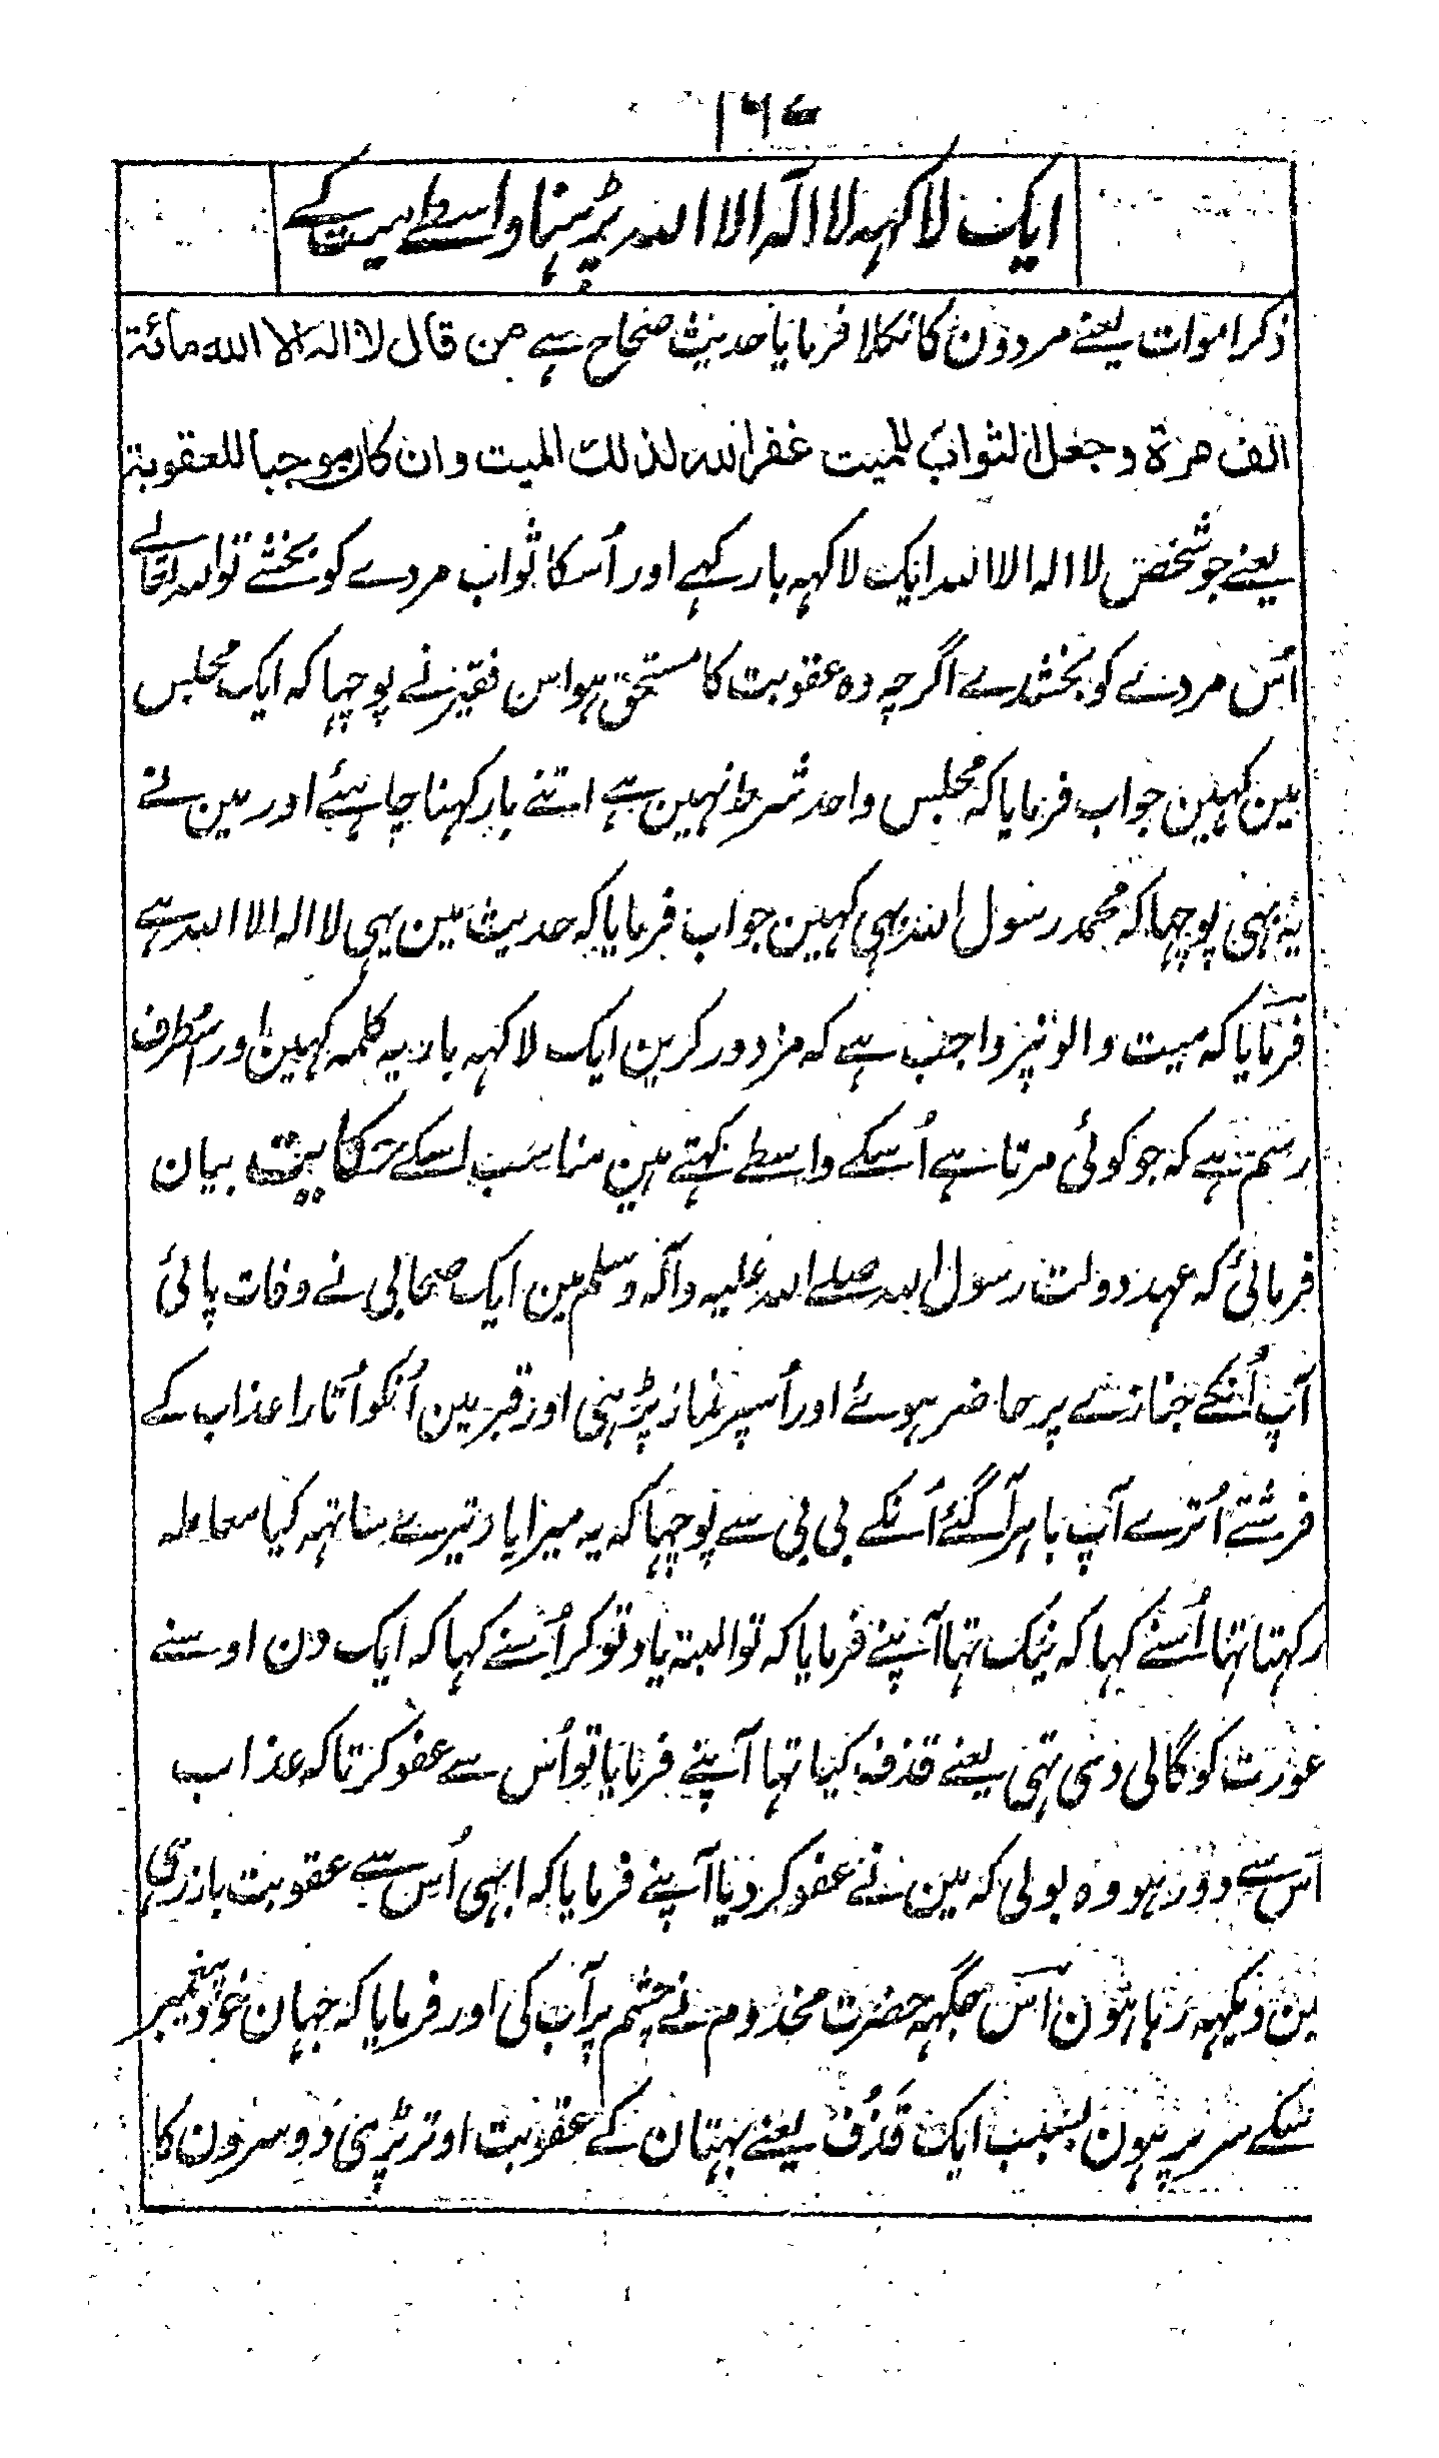 ایک لاکہہ لا الہ الا اللہ پڑہنا واسطے میت کے
ذکر اموات یعنے مردوں کا نکلا فرمایا حدیث صحاح ہے من قال لا الہ الا اللہ مائۃ
الف مرۃ وجعل الثواب للمیت غفر اللہ لذلک المیت وان کان موجبا للعقوبۃ
یعنے جو شخص لا الہ الا اللہ ایک لاکہہ بار کہے اور اُسکا ثواب مردے کو بخشے تو اللہ تعالے
اُس مردے کو بخشدے اگرچہ وہ عقوبت کا مستحق ہو اس فقیر نے پوچہا کہ ایک مجلس
مین کہین جواب فرمایا کہ مجلس واحد شرط نہین ہے اتنے بار کہنا چاہئے اور مین نے
یہ بہی پوچہا کہ محمد رسول اللہ بہی کہین جواب فرمایا کہ حدیث مین یہی لا الہ الا اللہ ہے
فرمایا کہ میت والونپر واجب ہے کہ مزدور کرین ایک لاکہہ بار یہ کلمہ کہین اور اسطرف
رسم ہے کہ جو کوئی مرتا ہے اُسکے واسطے کہتے ہین مناسب اسکے حکایت بیان
فرمائی کہ عہد دولت رسول اللہ صلے اللہ علیہ وآلہ وسلم مین ایک صحابی نے وفات پائی
آپ اُنکے جنازے پر حاضر ہوئے اور اُسپر نماز پڑہی اور قبر مین اُنکو اُتارا عذاب کے
فرشتے اُترے آپ باہر آگئے اُنکے بی بی سے پوچہا کہ یہ میرا یار تیرے ساتہہ کیا معاملہ
رکہتا تہا اُسنے کہا کہ نیک تہا آپنے فرمایا کہ تو البتہ یاد تو کر اُسنے کہا کہ ایک دن اوسنے
عورت کو گالی دی تہی یعنے قذف کیا تہا آپنے فرمایا تو اُس سے عفو کر تا کہ عذاب
اس سے دور ہو وہ بولی کہ مین نے عفو کر دیا آپنے فرمایا کہ ابہی اُس سے عقوبت باز رہی
مین دیکہہ رہا ہون اس جگہہ حضرت مخدوم نے چشم پر آب کی اور فرمایا کہ جہان خود پیغمبر
سکے سر پر ہون بسبب ایک قذف یعنے بہتان کے عقوبت اوتر پڑہی دوسرون کا